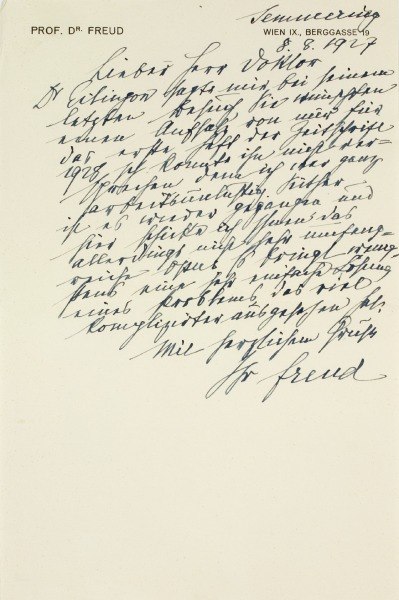 Semmering
PROF. DR. FREUD
WIEN IX., BERGGASSE 19
8. 8. 1927
Lieber Herr Doktor
Dr Eitingon sagte mir bei seinem
letzten Besuch Sie wünschten
einen Aufsatz von mir für
das erste Heft der Zeitschrift
1928. Ich konnte ihn nicht ver-
sprechen denn ich war ganz
arbeitsunlustig. Seither
ist es wieder gegangen und
hier schicke ich Ihnen das
allerdings nicht sehr umfang-
reiche Opus. Es bringt wenig-
stens eine sehr einfache Lösung
eines Problems das viel
komplizirter ausgesehen hat.
Mit herzlichem Gruß
Ihr Freud